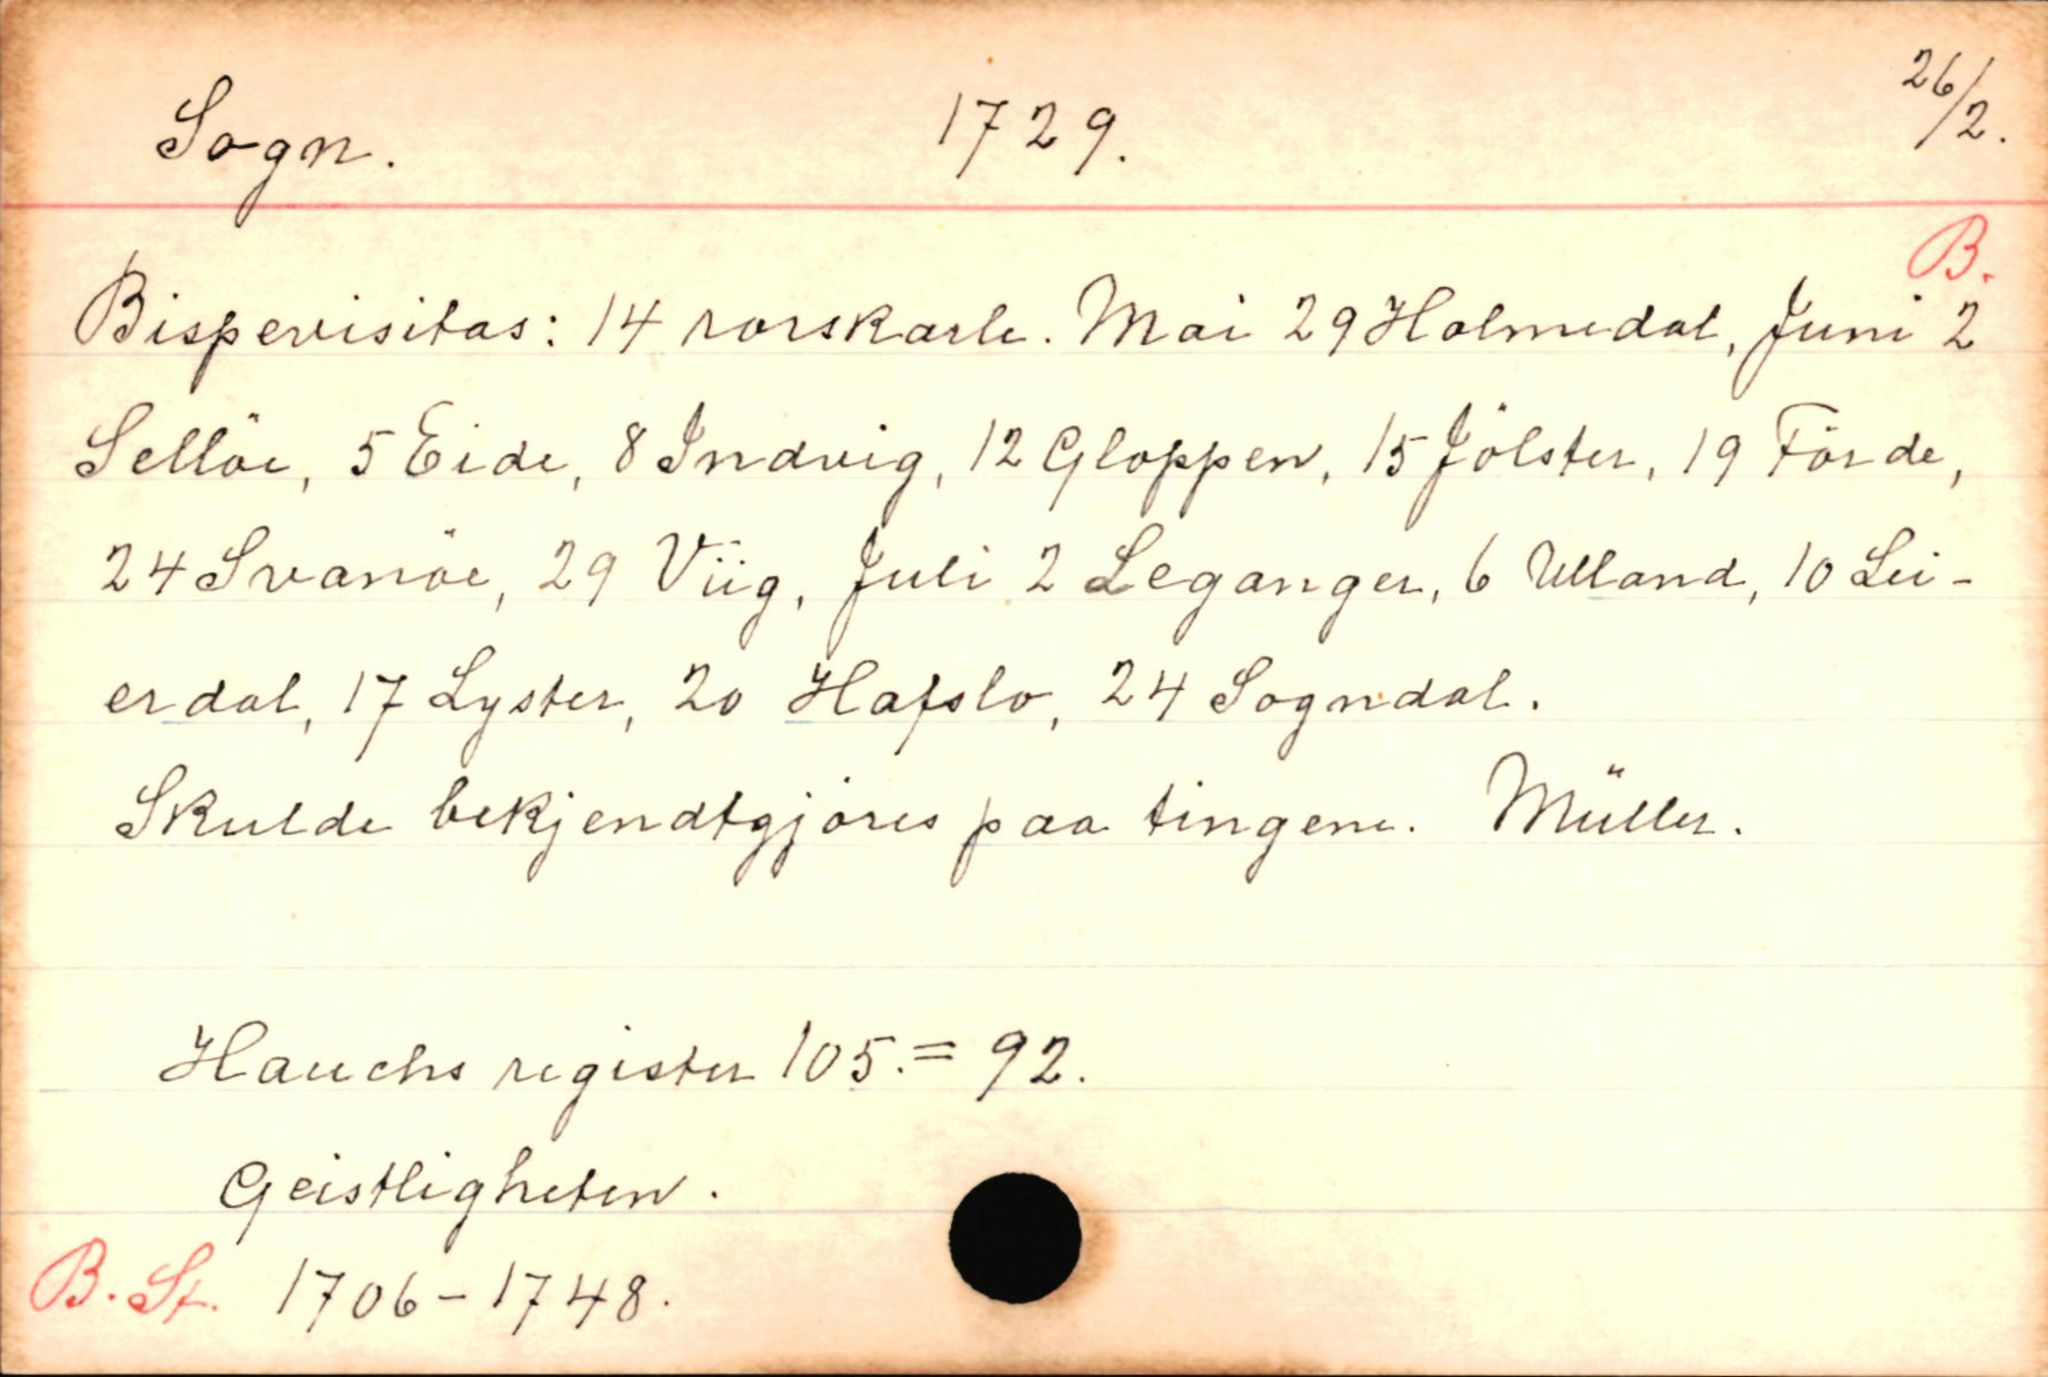 Sogn. 1729. 26/2.
B.
Bispevisitas: 14 rorskarle. Mai 29 Holmedal, Juni 2
Sellöe, 5 Eide, 8 Indvig, 12 Gloppen, 15 Jölster, 19 Förde,
24 Svanöe, 29 Viig, Juli 2 Leganger, 6 Ulland, 10 Lei-
erdal, 17 Lyster, 20 Hafslo, 24 Sogndal.
Skulde bekjendtgjöres paa tingene. Müller.
Hauchs register 105. = 92.
Geistligheten.
B. St. 1706-1748.